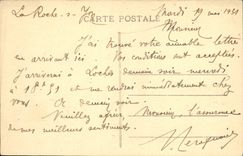 La Roche-s-Y Mardi 19 mai 1931
CARTE POSTALE
Monsieur
J'ai trouvé votre aimable lettre
en arrivant ici. Vos conditions sont acceptées.
J'arriverai à Loches demain soir mercredi
à 18h51 et me rendrai immédiatement chez
vous. A demain soir.
Veuillez agréer, Monsieur, l'assurance
de mes meilleurs sentiments.